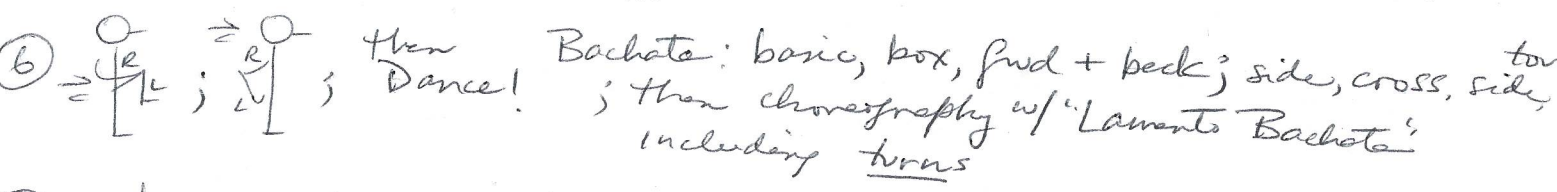 6 R L ; R L ; then Dance! Bachata: basic, box, fwd + back; side, cross, side, tou
; then choreography w/ "Lamento Bachata"
including turns